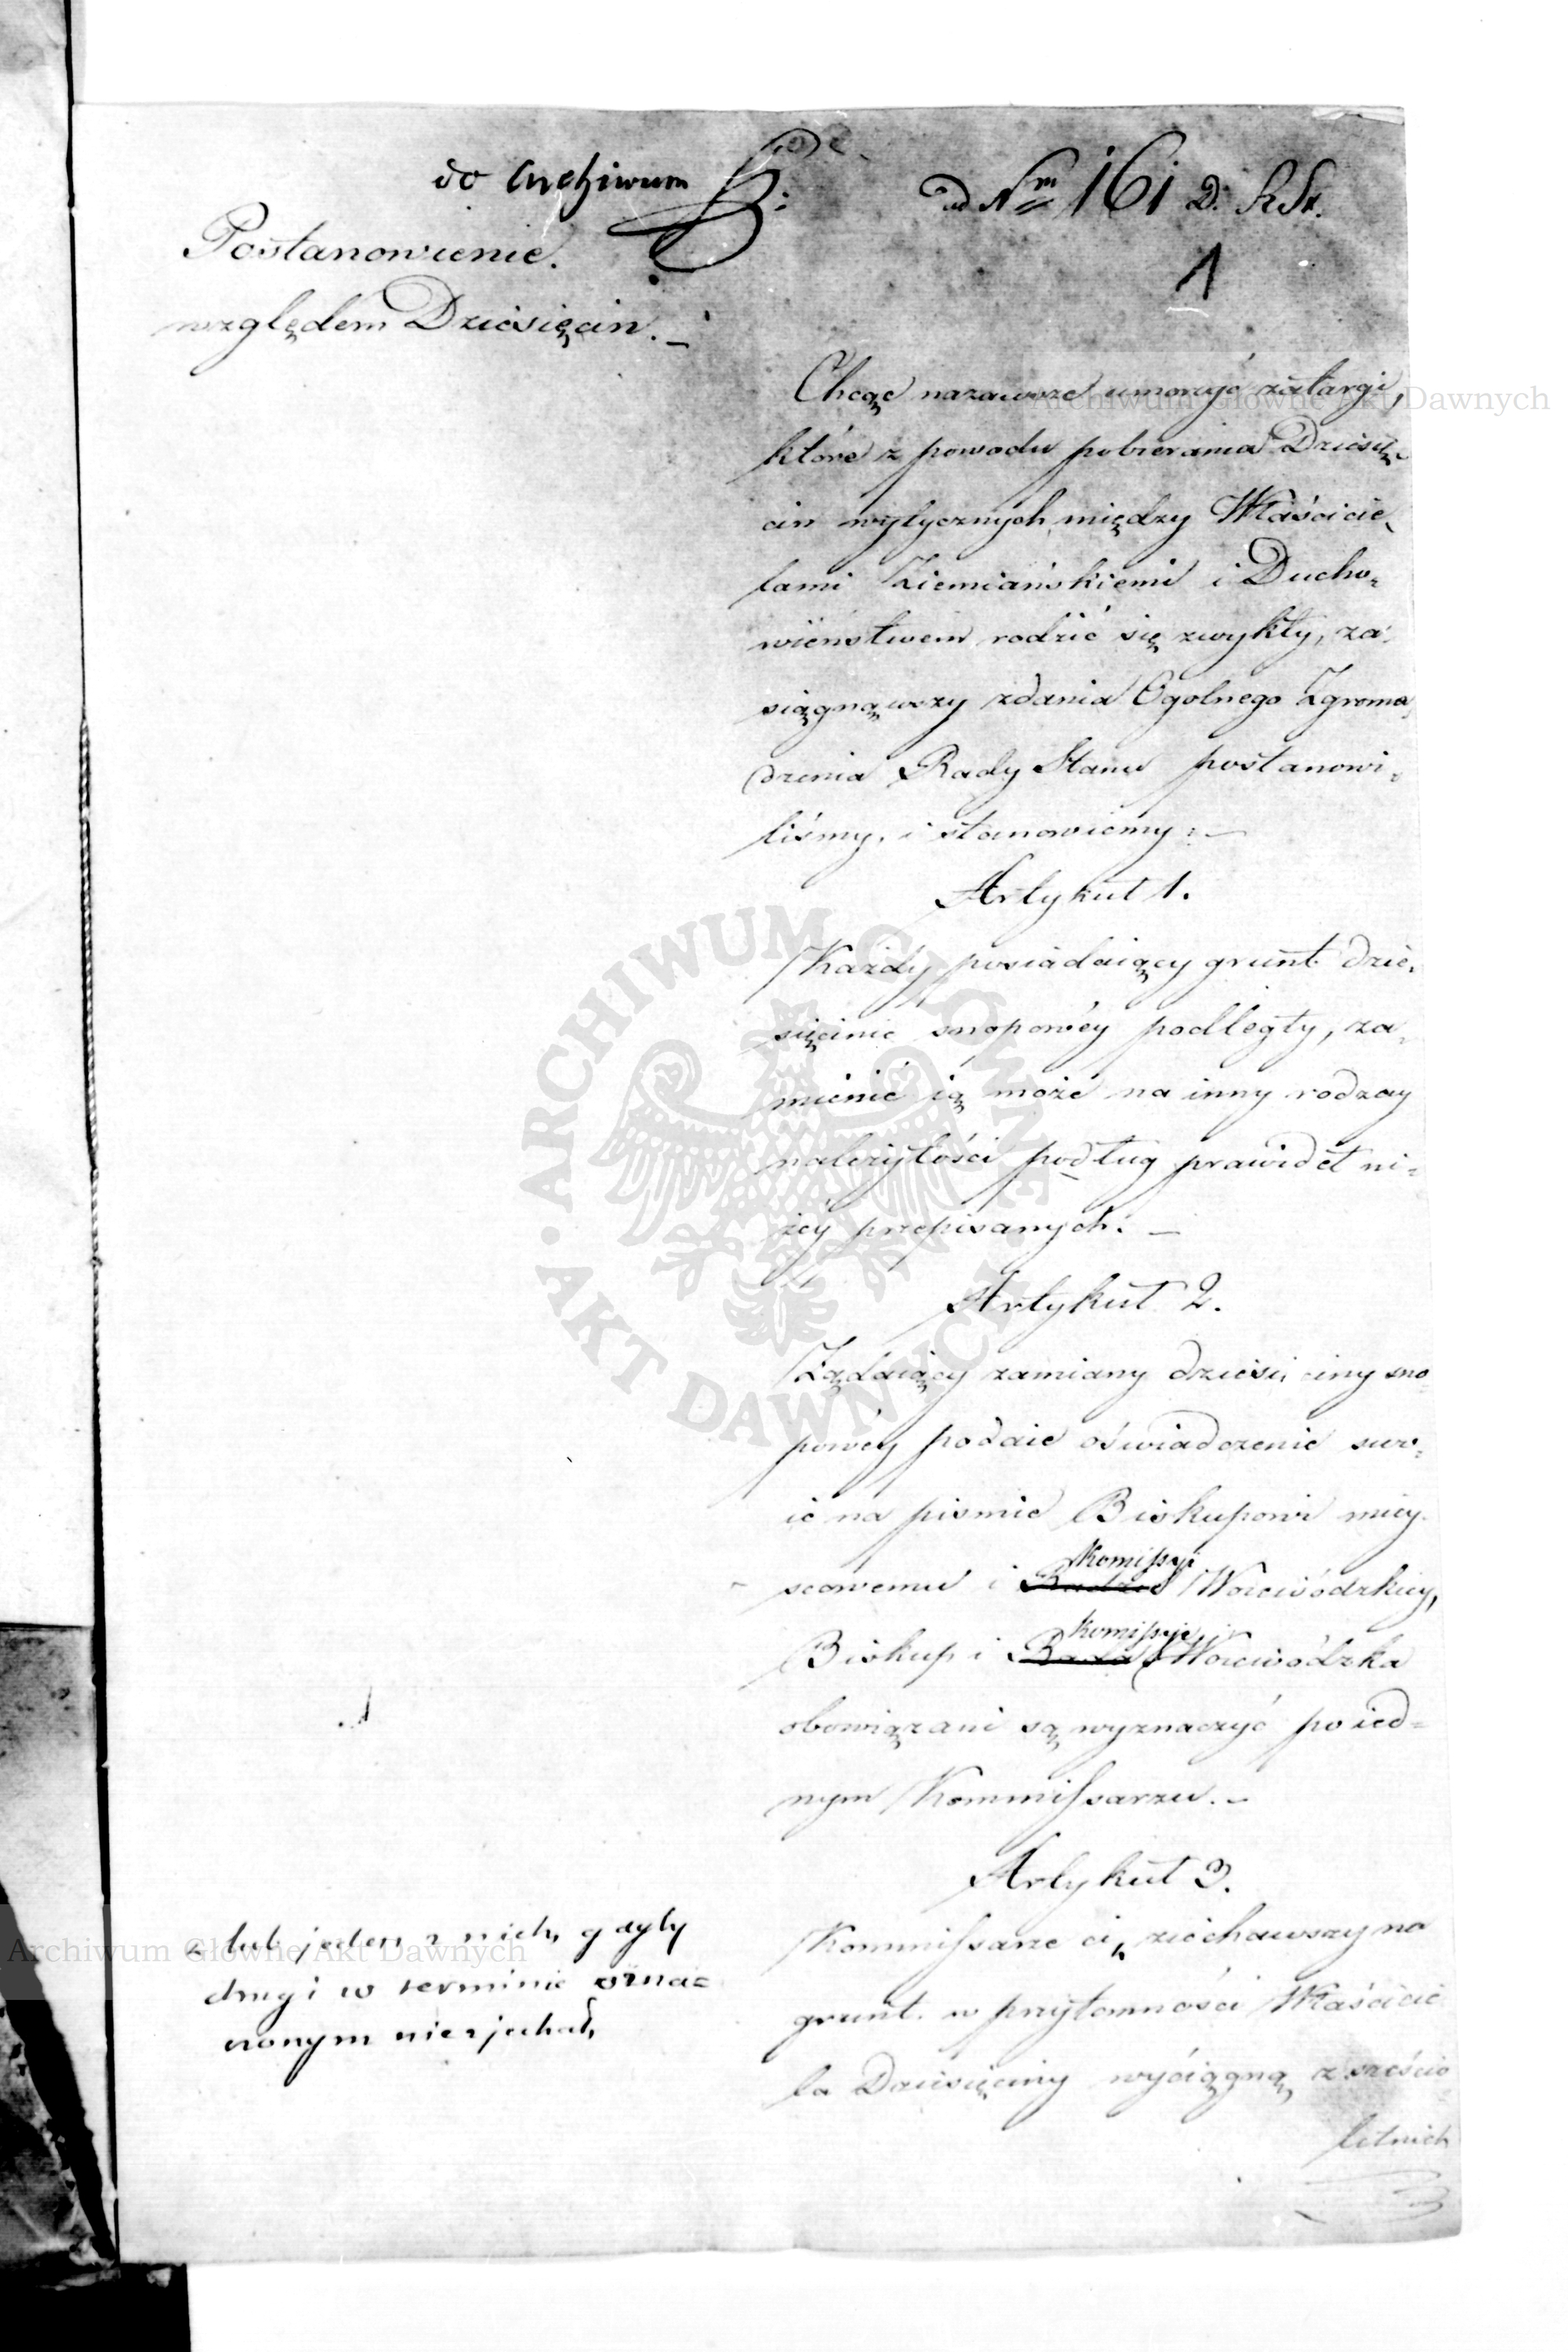 do Archiwum
ad Nm 161 D. R. St.
1
Postanowienie.
względem Dziesięcin.
Chcąc nazawsze umorzyć zatargi,
które z powodu pobierania Dziesię-
cin wytycznych między Właścicie-
lami Ziemiańskiemi i Ducho-
wieństwem rodzić się zwykły, za-
siągnąwszy zdania Ogolnego Zgroma-
dzenia Rady Stanu postanowi-
liśmy, i stanowiemy:
Artykuł 1.
Każdy posiadaiący grunt dzie-
sięcinie snopowéy podległy, za-
mienić ią może na inny rodzay
należytości podług prawideł ni-
żéy przepisanych.
Artykuł 2.
Żądaiący zamiany dziesięciny sno-
powéy podaie oświadczenie swo-
ie na pismie Biskupowi miey-
scowemu i Radzie Komissyi Woiewódzkiey,
Biskup i Rada Komissyia Woiewódzka
obowiązani są wyznaczyć po ied-
nym Kommissarzu.
Artykuł 3.
Kommissarze ci, ziechawszy na
grunt w przytomności Właścicie
la Dziesięciny wyciągną z sześcio
letnich
lub jeden z nich, gdyby
drugi w terminie ozna-
czonym niezjechał,
Archiwum Główne Akt Dawnych
ARCHIWUM GŁÓWNE AKT DAWNYCH
Archiwum Główne Akt Dawnych